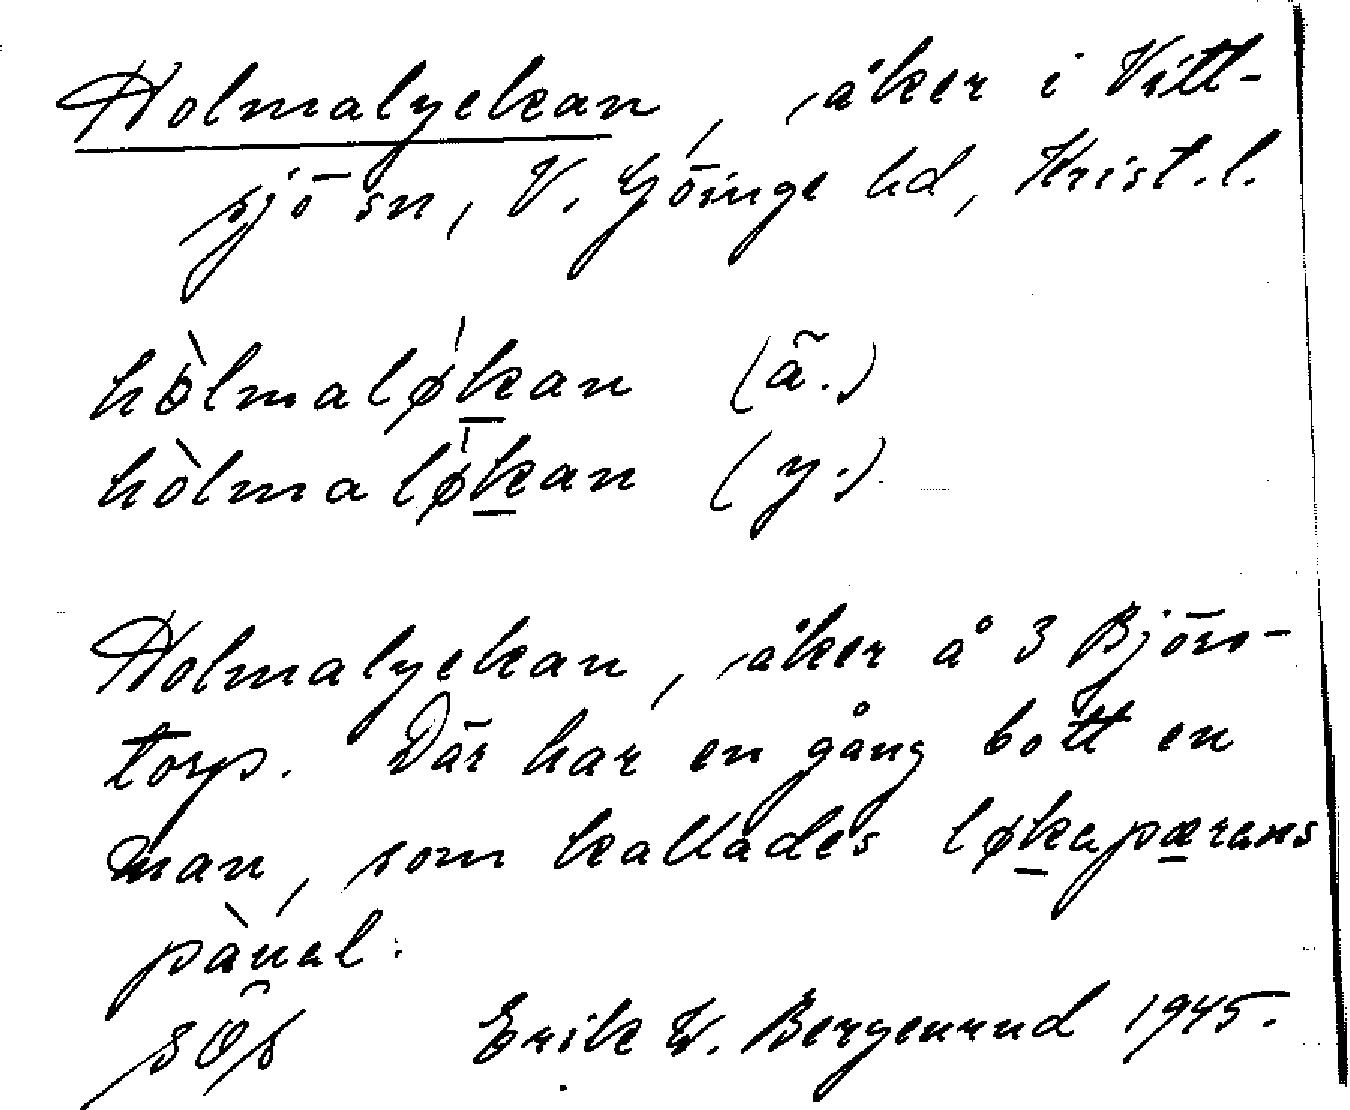 Holmalyckan, åker i Vitt-
sjö sn, V. Göinge hd, Krist. l.
hòlmaløkan (ä.)
hòlmaløkan (y.)
Holmalyckan, åker å 3 Björs-
torp. Där har en gång bott en
man, som kallades løkapærans
pànəl.
Erik W. Bergenrud 1945.